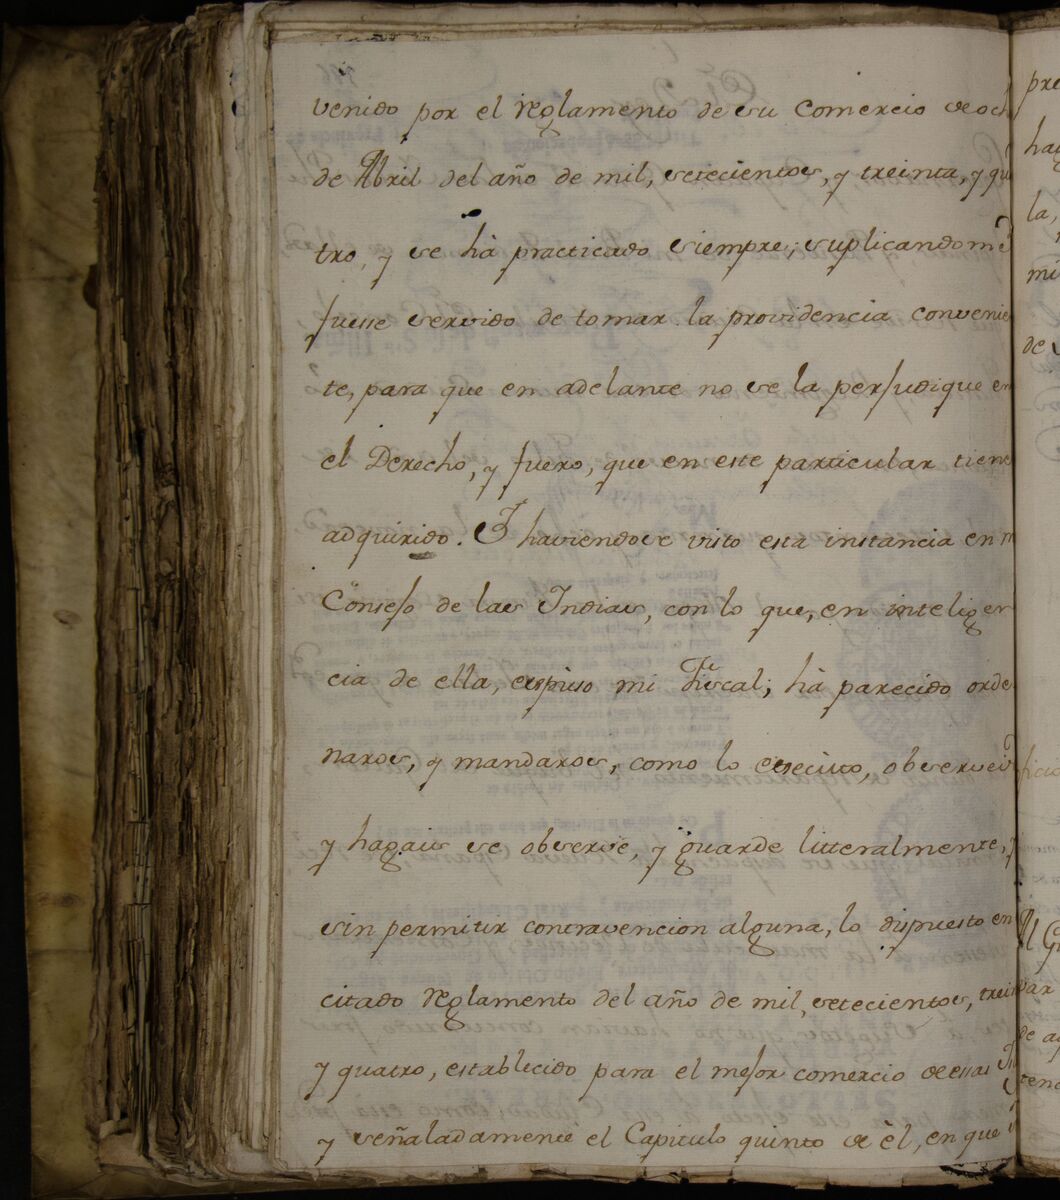 venido por el reglamento de su Comercio de och
de Abril del año de mil, setecientos, y treinta, y qua
tro, y se hà practicado siempre; suplicandome
fuesse servido de tomar la providencia convenien
te, para que en adelante no se la perjudique en
el Derecho, y fuero, que en este particular tiene
adquirido. Y haviendose visto esta instancia en m
Consejo de las Indias, con lo que, en inteligen
cia de ella, expuso mi Fiscal; hà parecido orde
naros, y mandaros, como lo executo, observeis
y hagais se observe, y guarde litteralmente, y
sin permitir contravencion alguna, lo dispuesto en
citado reglamento del año de mil, setecientos, trein
y quatro, establecido para el mejor comercio de essas
y señaladamente el Capitulo quinto de èl, en que
pre
hag
la,
mi
de
ficio
Al
par
de
tend